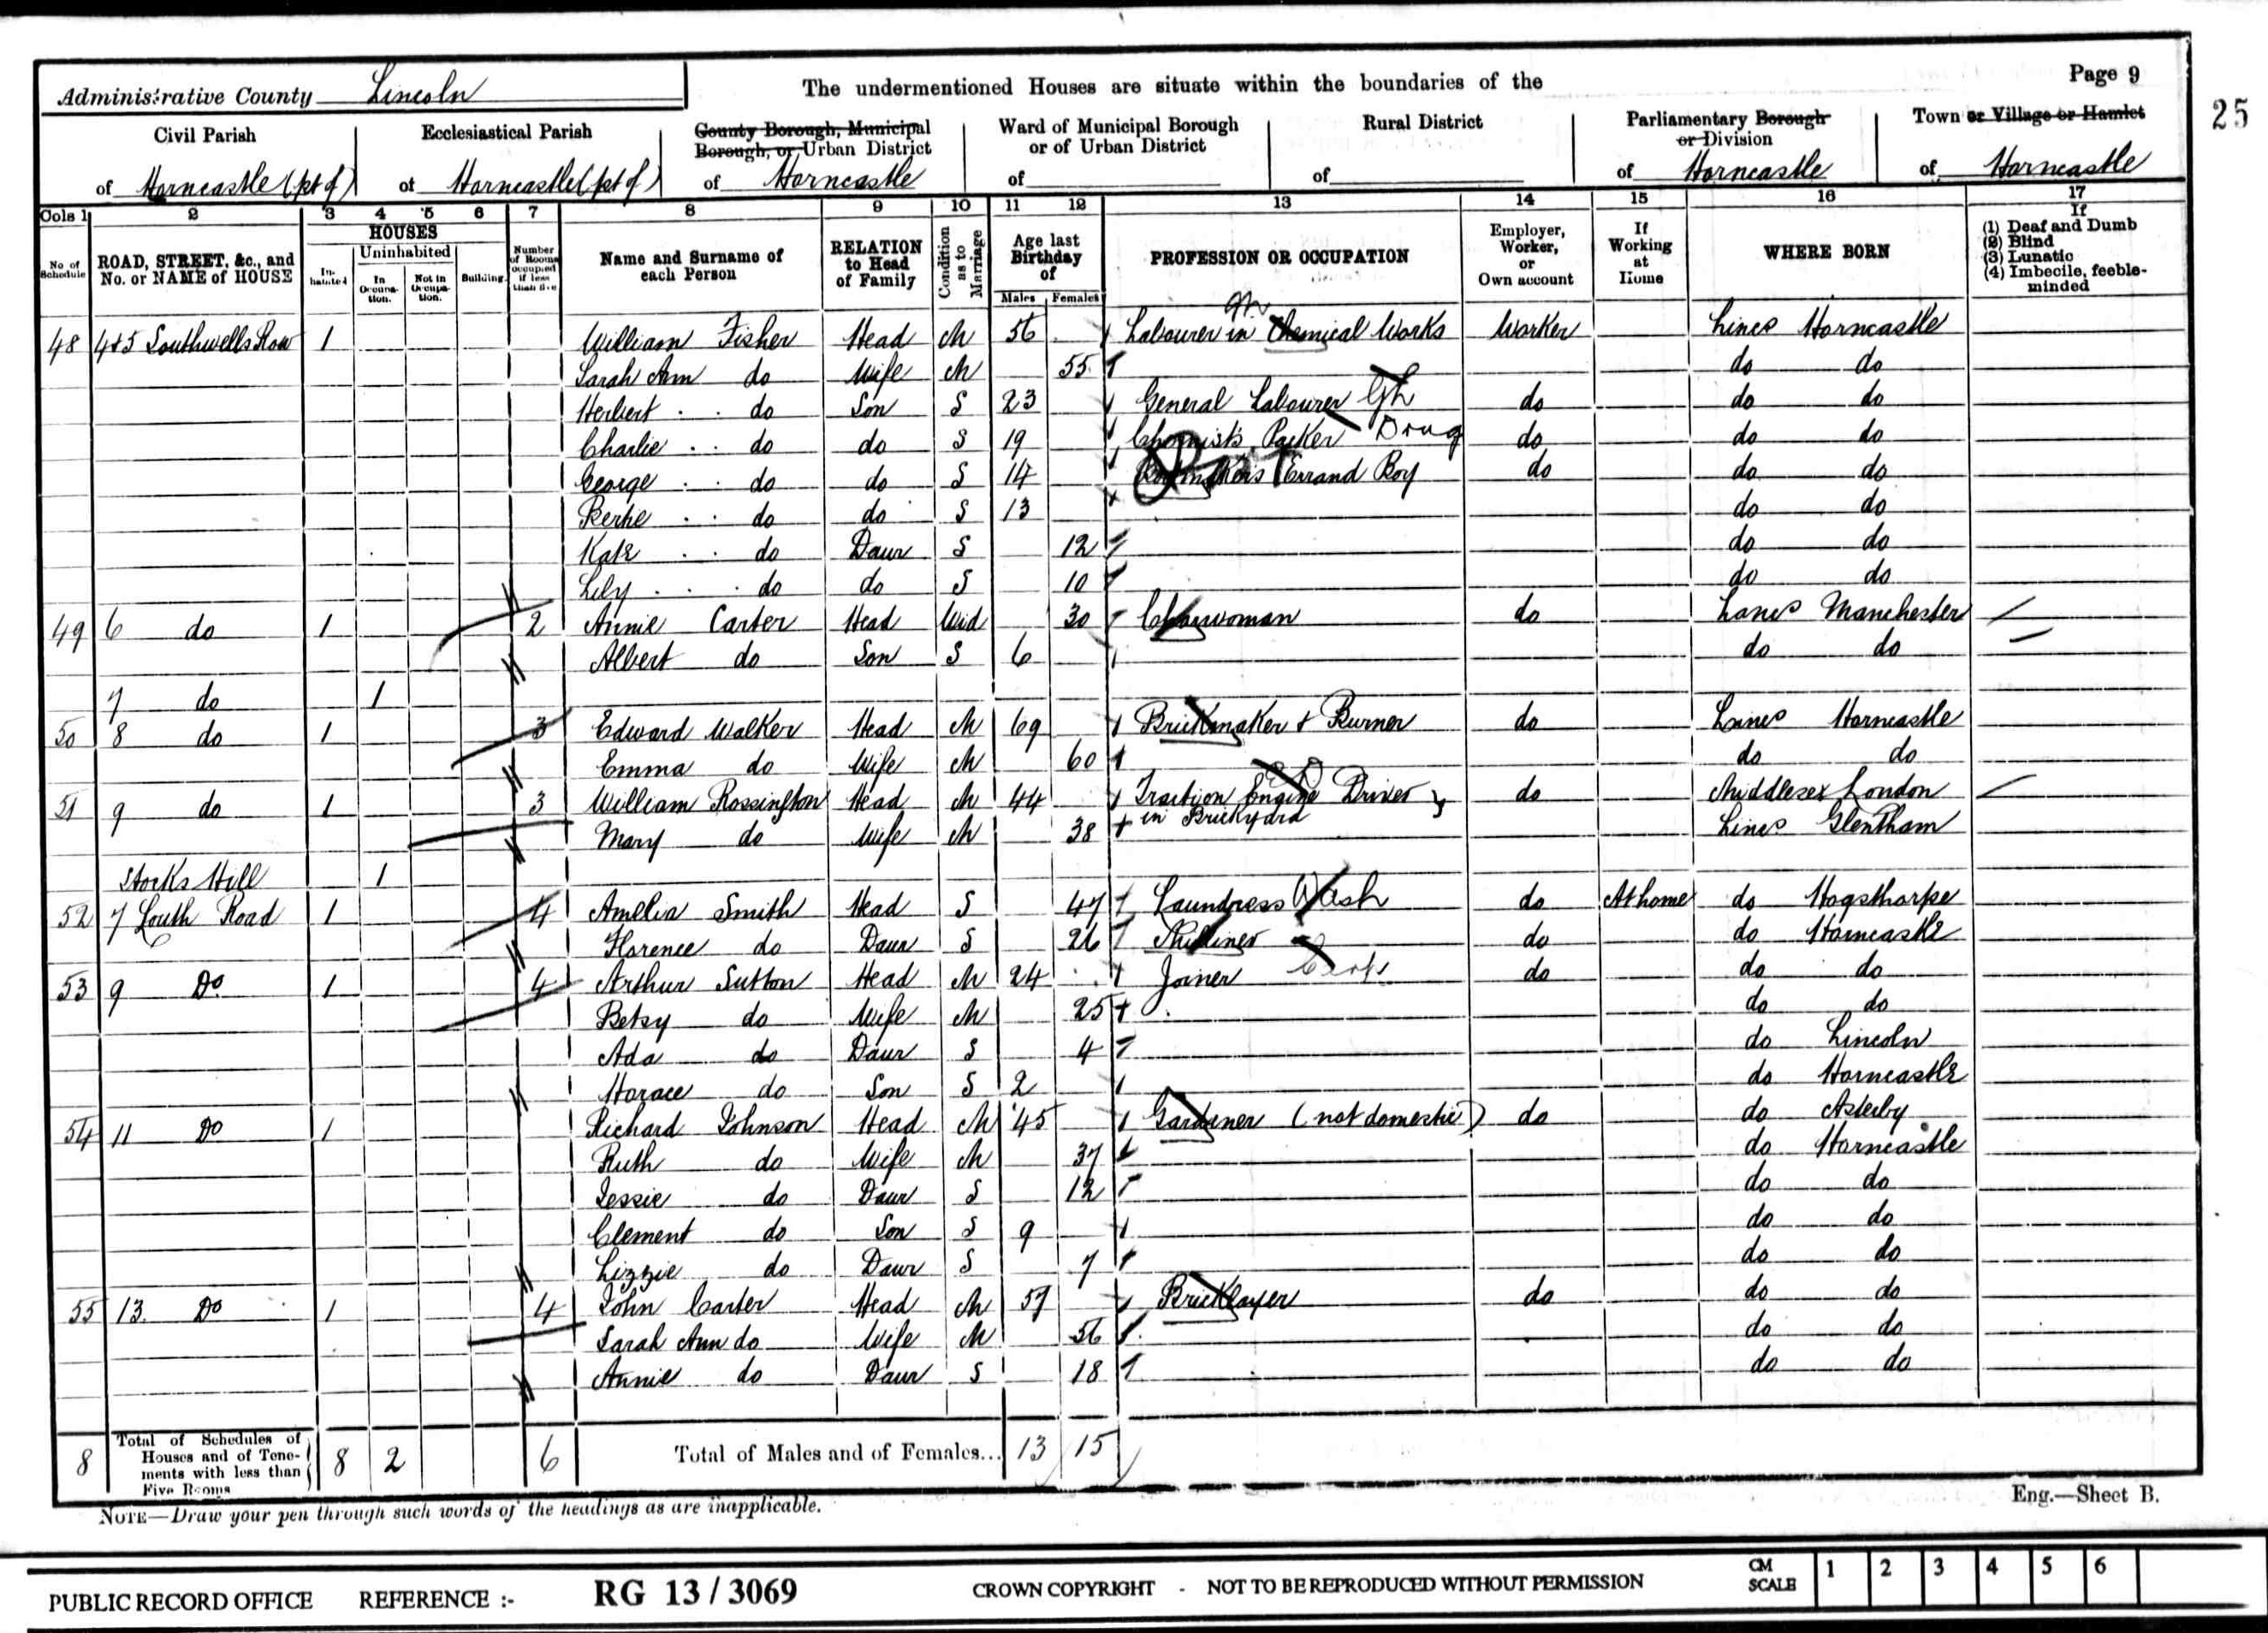 Administrative County Lincoln
The undermentioned Houses are situate within the boundaries of the
Page 9
25
Civil Parish
of Horncastle (pt of)
Ecclesiastical Parish
of Horncastle (pt of)
County Borough, Municipal
Borough, or Urban District
of Horncastle
Ward of Municipal Borough
or of Urban District
of
Rural District
of
Parliamentary Borough
or Division
of Horncastle
Town or Village or Hamlet
of Horncastle
Cols 1 2 3 4 5 6 7 8 9 10 11 12 13 14 15 16 17
No of Schedule
ROAD, STREET, &c., and
No. or NAME of HOUSE
HOUSES
In-habited
Uninhabited
In Occupa-tion.
Not in Occupa-tion.
Building
Number of Rooms occupied if less than five
Name and Surname of
each Person
RELATION
to Head
of Family
Condition as to Marriage
Age last
Birthday
of
Males Females
PROFESSION OR OCCUPATION
Employer,
Worker,
or
Own account
If
Working
at
Home
WHERE BORN
If
(1) Deaf and Dumb
(2) Blind
(3) Lunatic
(4) Imbecile, feeble-
minded
48 4 & 5 Southwells Row 1 William Fisher Head M 56 Labourer in Chemical Works Worker Lincs Horncastle
Sarah Ann do Wife M 55 do do
Herbert do Son S 23 General Labourer GL do do do
Charlie do do S 19 Chemists Packer Drug do do do
George do do S 14 Errand Boy do do do
do do S 13 do do
Kate do Daur S 12 do do
Lily do do S 10 do do
49 6 do 1 2 Annie Carter Head Wid 30 Charwoman do Lancs Manchester
Albert do Son S 6 do do
7 do 1
50 8 do 1 3 Edward Walker Head M 69 Brickmaker & Burner do Lincs Horncastle
Emma do Wife M 60 do do
51 9 do 1 3 William Rossington Head M 44 Traction Engine Driver do Middlesex London
in Brickyard
Mary do Wife M 38 Lincs Glentham
Stocks Hill 1
52 7 Louth Road 1 4 Amelia Smith Head S 47 Laundress Wash do At home do Hogsthorpe
Florence do Daur S 26 Milliner do do Horncastle
53 9 Do 1 4 Arthur Sutton Head M 24 Joiner Carp do do do
Betsy do Wife M 25 do do
Ada do Daur S 4 do Lincoln
Horace do Son S 2 do Horncastle
54 11 Do 1 Richard Johnson Head M 45 Gardener (not domestic) do do Asterby
Ruth do Wife M 37 do Horncastle
Jessie do Daur S 12 do do
Clement do Son S 9 do do
Lizzie do Daur S 7 do do
55 13 Do 1 4 John Carter Head M 57 Bricklayer do do do
Sarah Ann do Wife M 56 do do
Annie do Daur S 18 do do
8 Total of Schedules of
Houses and of Tene-
ments with less than
Five Rooms 8 2 6 Total of Males and of Females... 13 15
NOTE—Draw your pen through such words of the headings as are inapplicable.
Eng.—Sheet B.
PUBLIC RECORD OFFICE REFERENCE :- RG 13 / 3069 CROWN COPYRIGHT - NOT TO BE REPRODUCED WITHOUT PERMISSION CM SCALE 1 2 3 4 5 6